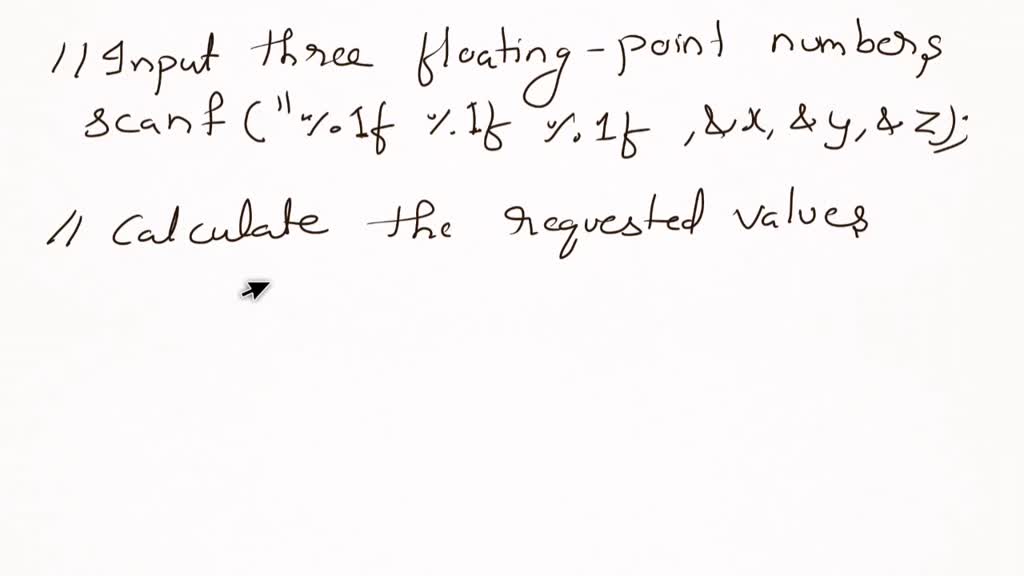 //Input three floating-point numbers
scanf("%lf %lf %lf ,&x, &y, &z);
// Calculate the requested values